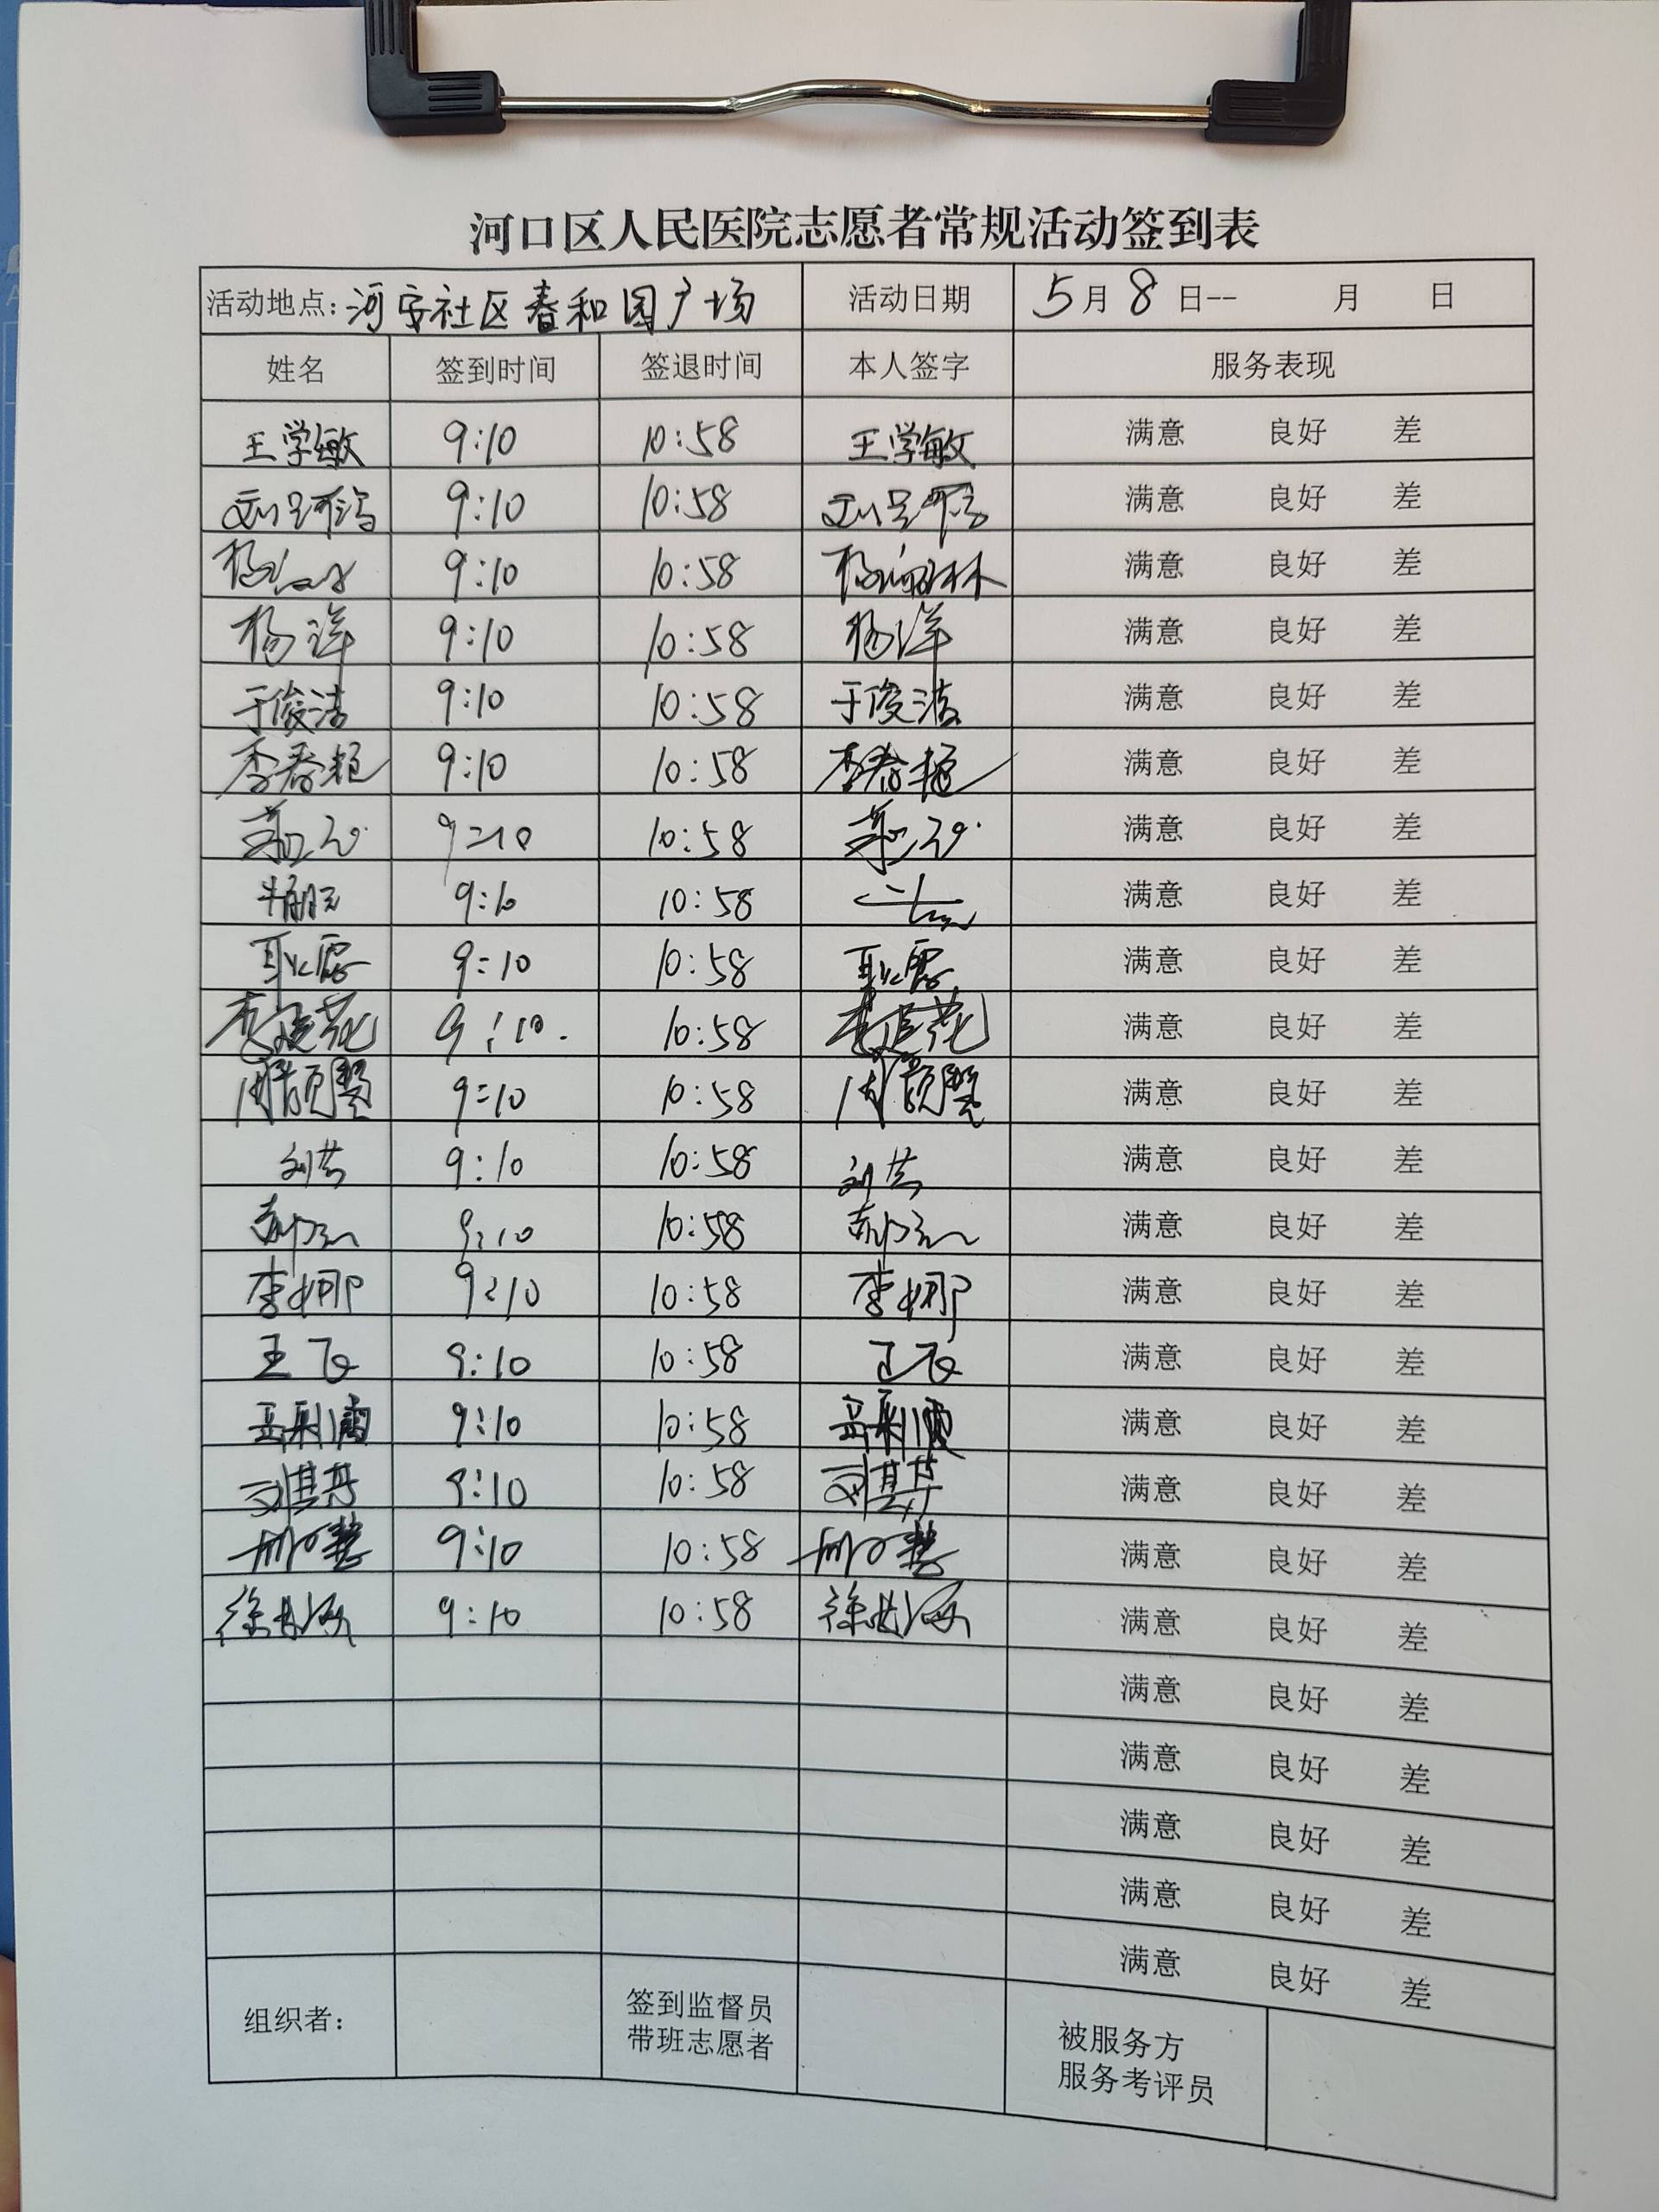 河口区人民医院志愿者常规活动签到表
活动地点: 河安社区春和园广场 活动日期 5月8日-- 月 日
姓名 签到时间 签退时间 本人签字 服务表现
王学敏 9:10 10:58 王学敏 满意 良好 差
9:10 10:58 满意 良好 差
9:10 10:58 满意 良好 差
杨洋 9:10 10:58 杨洋 满意 良好 差
于俊洁 9:10 10:58 于俊洁 满意 良好 差
李春艳 9:10 10:58 李春艳 满意 良好 差
9:10 10:58 满意 良好 差
9:10 10:58 满意 良好 差
耿露 9:10 10:58 耿露 满意 良好 差
9:10 10:58 满意 良好 差
9:10 10:58 满意 良好 差
刘芸 9:10 10:58 刘芸 满意 良好 差
9:10 10:58 满意 良好 差
李娜 9:10 10:58 李娜 满意 良好 差
王飞 9:10 10:58 王飞 满意 良好 差
9:10 10:58 满意 良好 差
刘其丹 9:10 10:58 刘其丹 满意 良好 差
9:10 10:58 满意 良好 差
9:10 10:58 满意 良好 差
满意 良好 差
满意 良好 差
满意 良好 差
满意 良好 差
满意 良好 差
组织者: 签到监督员 被服务方
带班志愿者 服务考评员